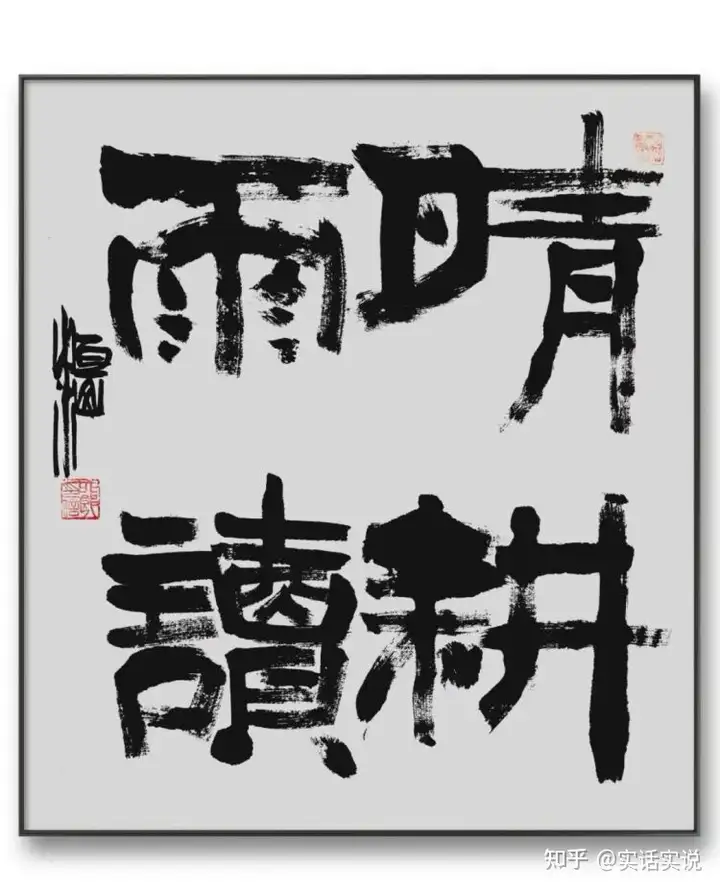 晴耕
雨讀
知乎 @实话实说